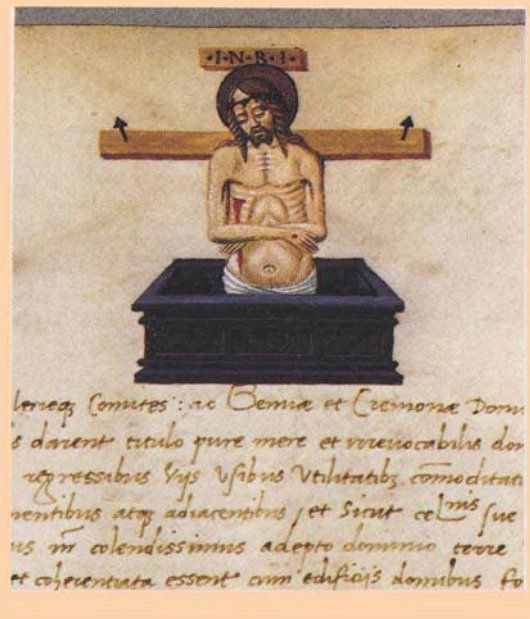 ·I·N·R·I·
Comites: ac Genuæ et Cremonæ Domi
s darent titulo pure mere et irrevocabilis don
regressibus Vijs Usibus Utilitatibꝫ comoditati
nentibus atqꝫ adiacentibus / et Sicut cel nis sue
us mr̄ colendissimus adepto dominio terre
et coherentiata essent cum edificijs domibus fo